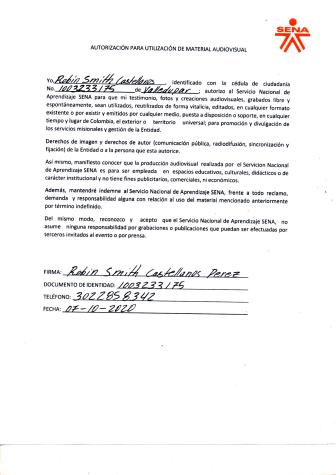 SENA
AUTORIZACIÓN PARA UTILIZACIÓN DE MATERIAL AUDIOVISUAL
Yo, Robin Smith Castellanos, identificado con la cédula de ciudadanía
No. 1003233175 de Valledupar; autorizo al Servicio Nacional de
Aprendizaje SENA para que mi testimonio, fotos y creaciones audiovisuales, grabados libre y
espontáneamente, sean utilizados, reutilizados de forma vitalicia, editados, en cualquier formato
existente o por existir y emitidos por cualquier medio, puesta a disposición o soporte, en cualquier
tiempo y lugar de Colombia, el exterior o territorio universal; para promoción y divulgación de
los servicios misionales y gestión de la Entidad.
Derechos de imagen y derechos de autor (comunicación pública, radiodifusión, sincronización y
fijación) de la Entidad o a la persona que esta autorice.
Así mismo, manifiesto conocer que la producción audiovisual realizada por el Servicion Nacional
de Aprendizaje SENA es para ser empleada en espacios educativos, culturales, didácticos o de
carácter institucional y no tiene fines publicitarios, comerciales, ni económicos.
Además, mantendré indemne al Servicio Nacional de Aprendizaje SENA, frente a todo reclamo,
demanda y responsabilidad alguna con relación al uso del material mencionado anteriormente
por término indefinido.
Del mismo modo, reconozco y acepto que el Servicio Nacional de Aprendizaje SENA, no
asume ninguna responsabilidad por grabaciones o publicaciones que puedan ser efectuadas por
terceros invitados al evento o por prensa.
FIRMA: Robin Smith Castellanos Perez
DOCUMENTO DE IDENTIDAD: 1003233175
TELÉFONO: 3022858342
FECHA: 07-10-2020